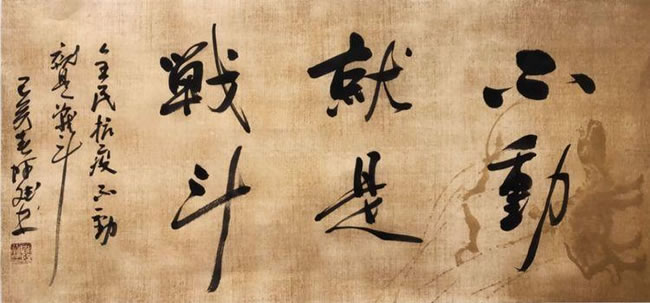 不動
就是
戦斗
全民抗疫不動
就是戦斗
己亥